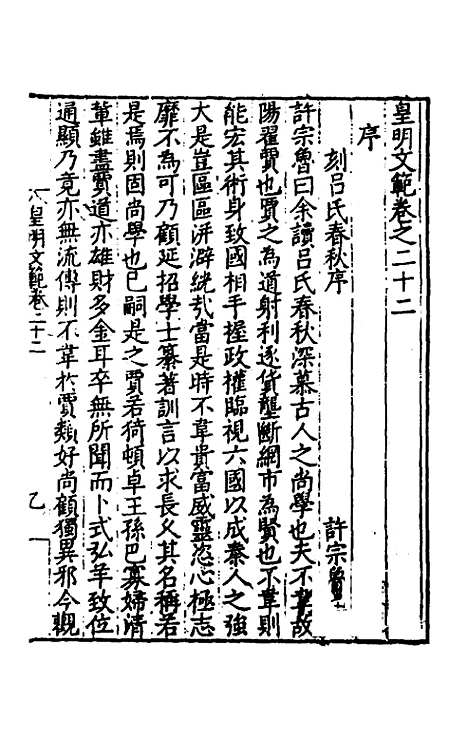 皇明文範卷之二十二
序
刻呂氏春秋序
許宗魯
許宗魯曰余讀呂氏春秋深慕古人之尚學也夫不韋故
陽翟賈也賈之為道射利逐貨壟斷網市為賢也不韋則
能宏其術身致國相手握政權臨視六國以成秦人之強
大是豈區區洴澼絖哉當是時不韋貴富威靈恣心極志
靡不為可乃顧延招學士纂著訓言以求長久其名稱若
是焉則固尚學也已嗣是之賈若猗頓卓王孫巴寡婦清
輩雖盡賈道亦雄財多金耳卒無所聞而卜式弘羊致位
通顯乃竟亦無流傳則不韋於賈類好尚顧獨異邪今觀
皇明文範卷二十二
乙一